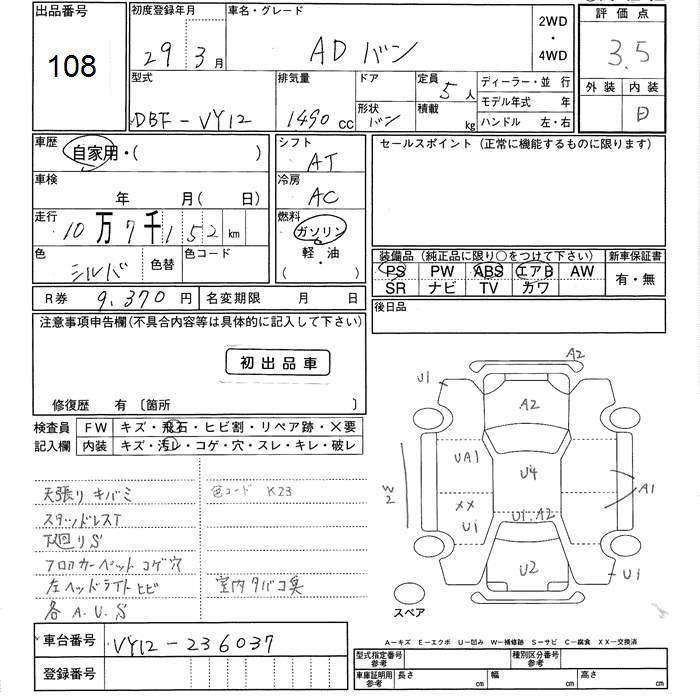 出品番号
108
初度登録年月
29年3月
車名・グレード
AD バン
2WD
・
4WD
評価点
3.5
外装 内装
B
型式
DBF-VY12
排気量
1490 cc
ドア
形状
バン
定員
5人
積載
kg
ディーラー・並 行
モデル年式 年
ハンドル 左・右
車歴
自家用・( )
車検
年 月( 日)
走行
10万7千152km
色
シルバ
色替
色コード
シフト
AT
冷房
AC
燃料
ガソリン
軽・油
( )
セールスポイント(正常に機能するものに限ります)
装備品(純正品に限り○をつけて下さい)
PS PW ABS エアB AW
SR ナビ TV カワ
新車保証書
有・無
R券 9,370円
名変期限 月 日
後日品
注意事項申告欄(不具合内容等は具体的に記入して下さい)
初出品車
修復歴 有〔箇所 〕
検査員
記入欄
FW キズ・飛石・ヒビ割・リペア跡・×要
内装 キズ・汚レ・コゲ・穴・スレ・キレ・破レ
天張りキバミ
色コード K23
スタッドレスT
下廻りS
フロアカーペットコゲ穴
左ヘッドライトヒビ
室内タバコ臭
各A.U.S
A2
U1
A2
UA1
U4
W2
XX
U1
A1
U1.A2
U2
U1
スペア
A−キズ E−エクボ U−凹み W−補修跡 S−サビ C−腐食 XX−交換済
車台番号 VY12-236037
登録番号
型式指定番号
参考
種別区分番号
参考
車庫証明用
参考
長さ cm
幅 cm
高さ cm